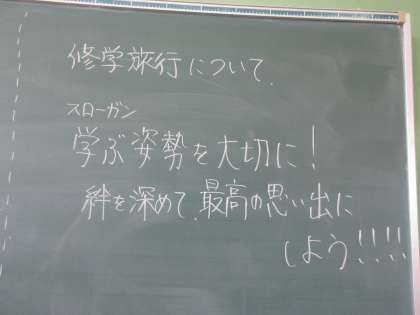 修学旅行について.
スローガン
学ぶ姿勢を大切に!
絆を深めて.最高の思い出に
しよう!!!!